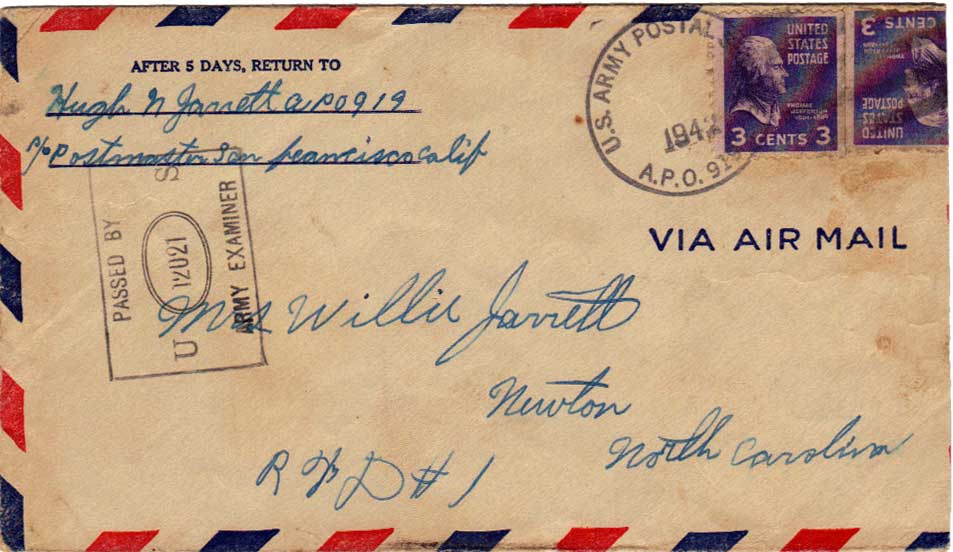 AFTER 5 DAYS, RETURN TO
Hugh N Jarrett APO 919
c/o Postmaster San Francisco Calif
U.S. ARMY POSTAL
1942
A.P.O. 919
UNITED
STATES
POSTAGE
THOMAS
JEFFERSON
3 CENTS 3
UNITED
STATES
POSTAGE
CENTS 3
VIA AIR MAIL
PASSED BY
U S
12021
ARMY EXAMINER
Mrs Willie Jarrett
Newton
North Carolina
R F D # 1